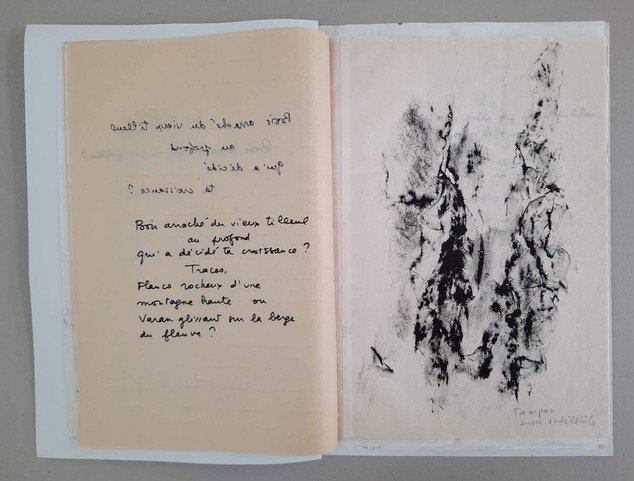 Bois arraché du vieux tilleul
au profond
qui a décidé
ta croissance ?
Bois arraché du vieux tilleul
au profond
qui a décidé ta croissance ?
Traces,
Flancs rocheux d'une
montagne haute ou
Varan glissant sur la berge
du fleuve ?
Tampon
encre indélébile